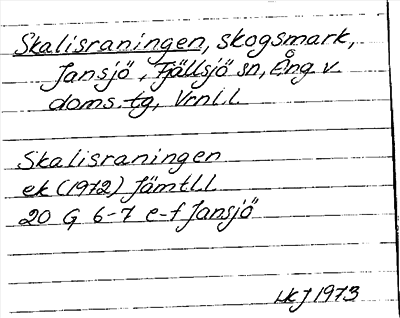 Skalisraningen, skogsmark,
Jansjö, Fjällsjö sn, Ång. v.
doms. tg, Vrnl. l
Skalisraningen
ek (1972) Jämtl. l
20 G 6-7 e-f Jansjö
LKJ 1973